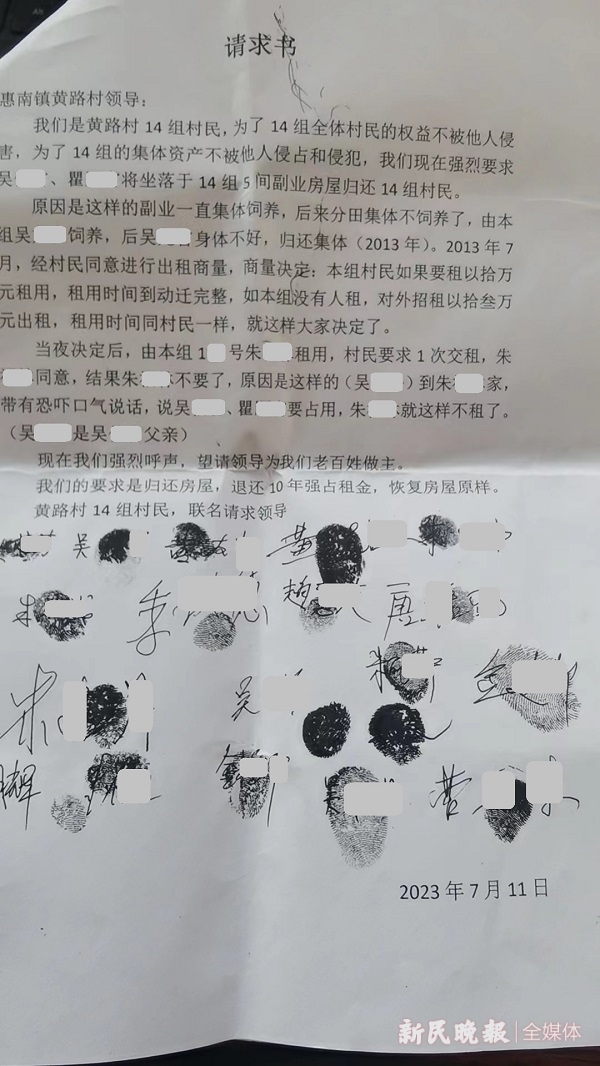 请求书
惠南镇黄路村领导：
我们是黄路村14组村民，为了14组全体村民的权益不被他人侵
害，为了14组的集体资产不被他人侵占和侵犯，我们现在强烈要求
吴、瞿将坐落于14组5间副业房屋归还14组村民。
原因是这样的副业一直集体饲养，后来分田集体不饲养了，由本
组吴饲养，后吴身体不好，归还集体（2013年）。2013年7
月，经村民同意进行出租商量，商量决定：本组村民如果要租以拾万
元租用，租用时间到动迁完整，如本组没有人租，对外招租以拾叁万
元出租，租用时间同村民一样，就这样大家决定了。
当夜决定后，由本组1号朱租用，村民要求1次交租，朱
同意，结果朱不要了，原因是这样的（吴）到朱家，
带有恐吓口气说话，说吴、瞿要占用，朱就这样不租了。
（吴是吴父亲）
现在我们强烈呼声，望请领导为我们老百姓做主。
我们的要求是归还房屋，退还10年强占租金，恢复房屋原样。
黄路村14组村民，联名请求领导
吴 黄
朱 季 赵 唐
朱 吴 金
曹
2023年7月11日
新民晚报|全媒体